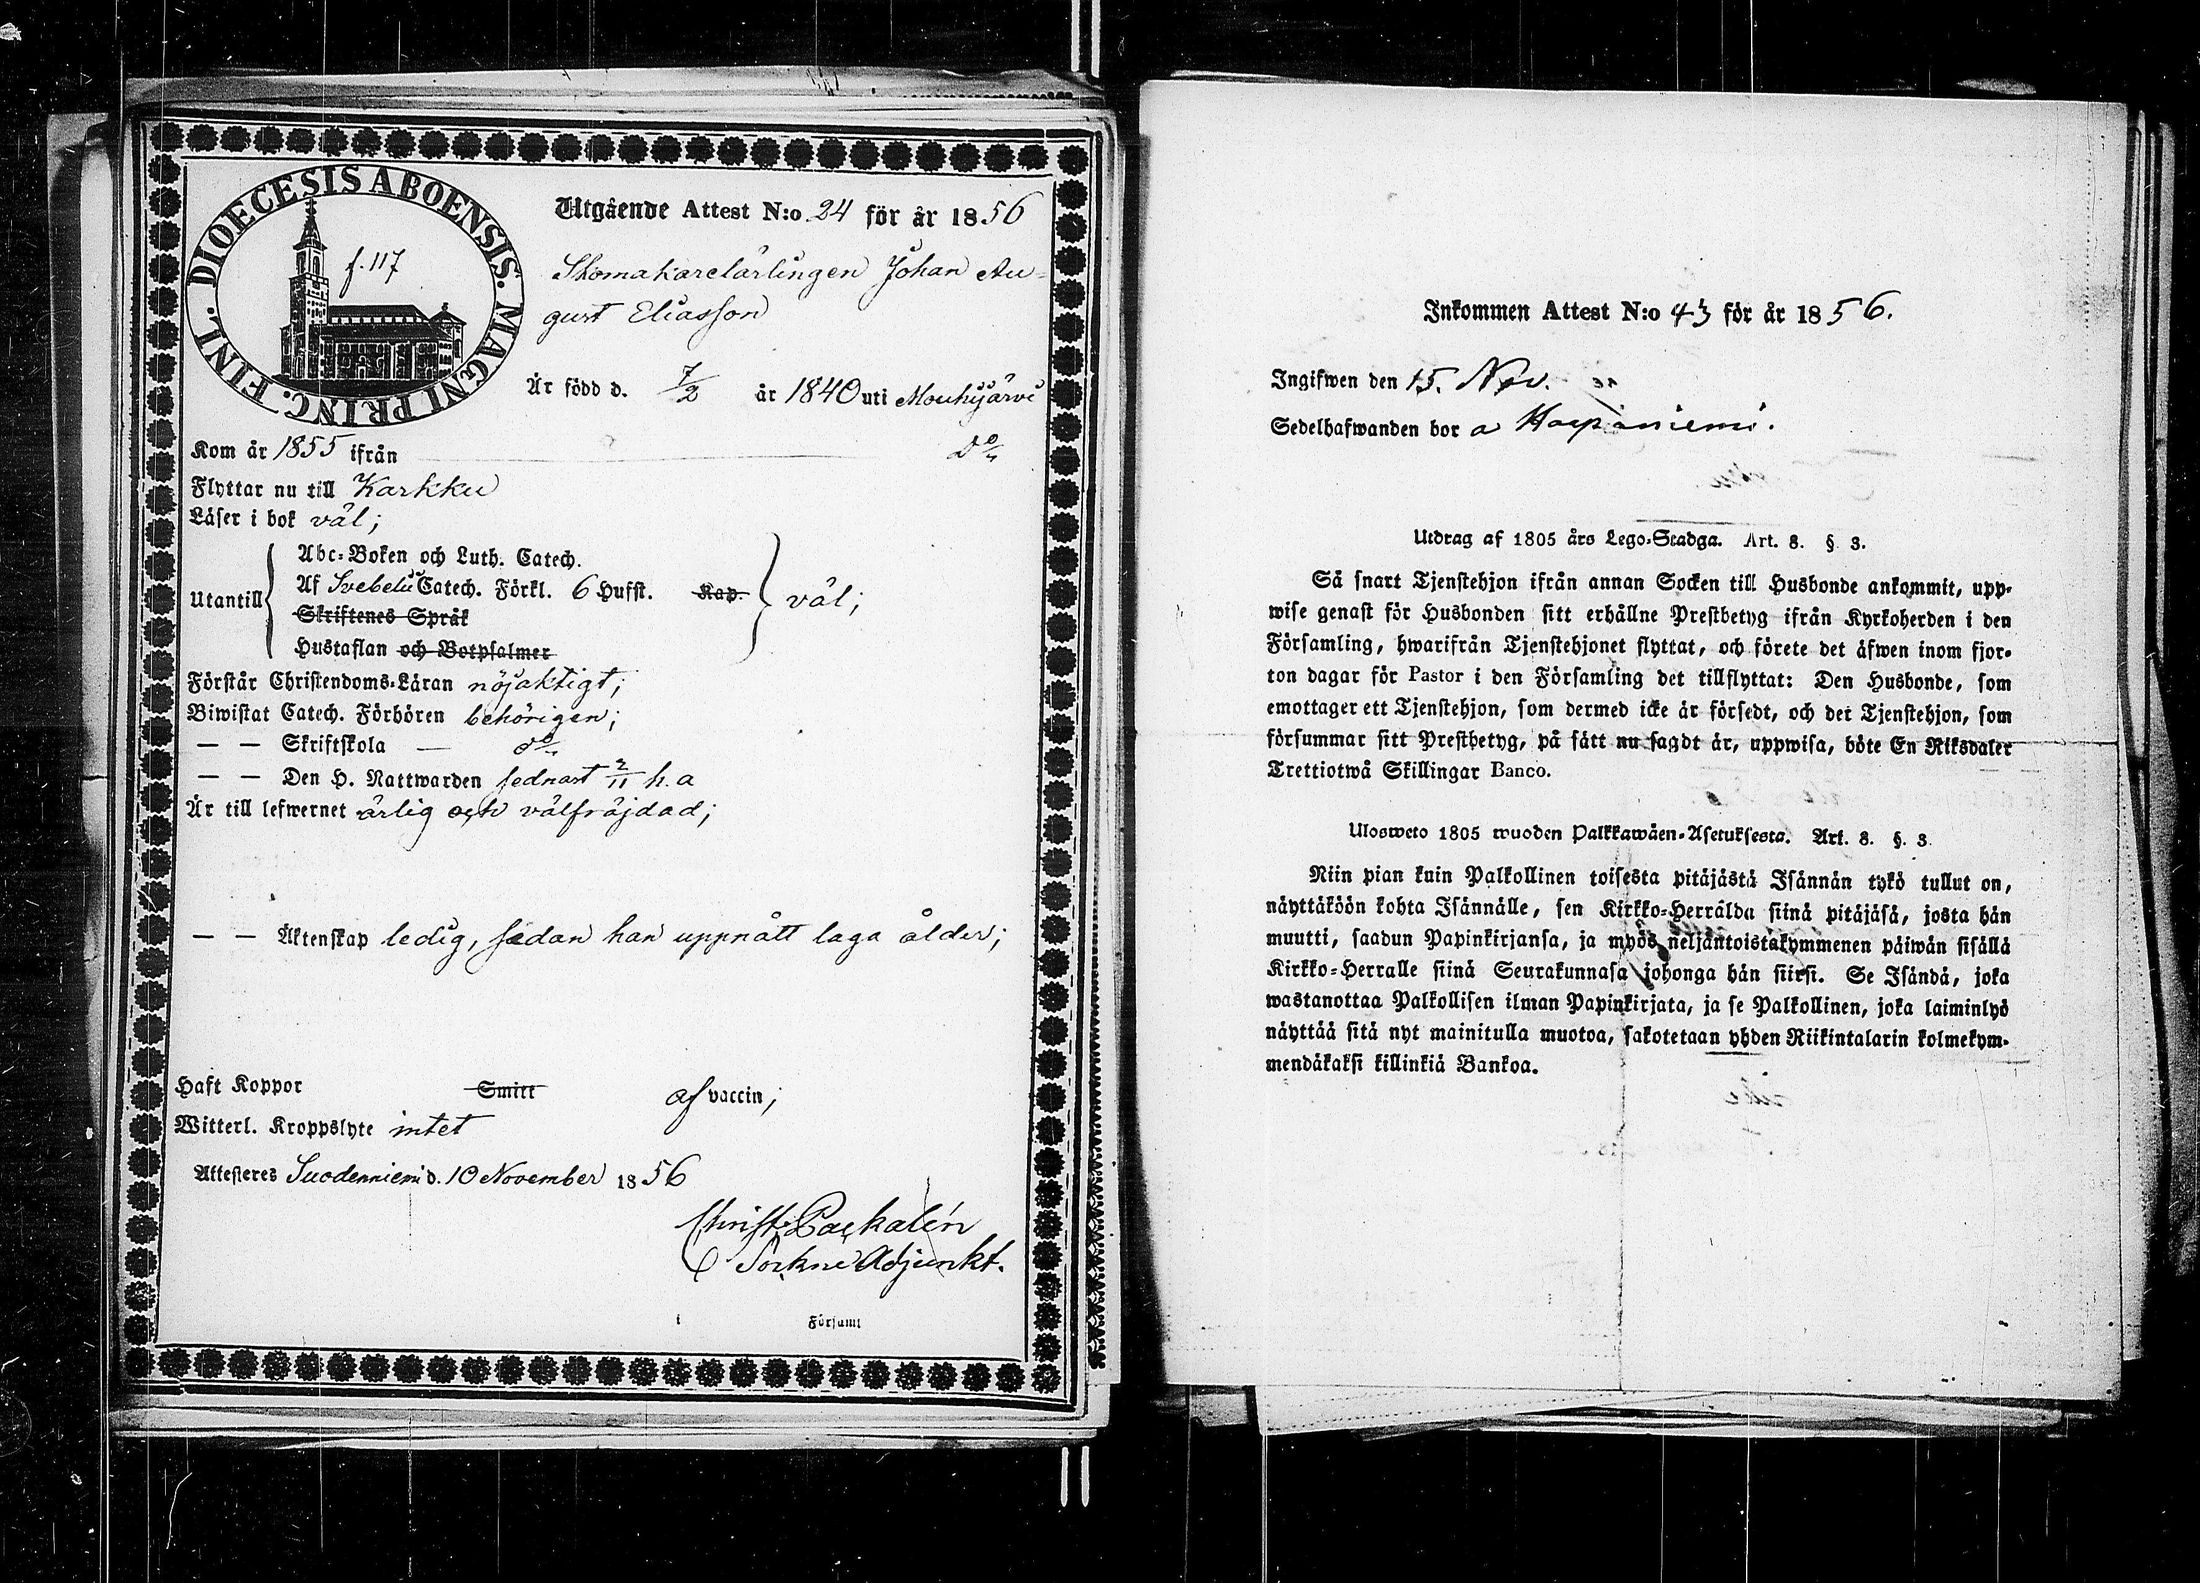 DIOECESIS ABOENSIS. MAGNI PRINC. FINL.
f. 117
Utgående Attest N:o 24 för år 1856
Skomakarelärlingen Johan Au-
gust Eliasson
Är född d. 7/2 år 1840 uti Mouhijärvi
Kom år 1855 ifrån d:o
Flyttar nu till Karkku
Läser i bok väl;
Abc-Boken och Luth. Catech.
Utantill Af Svebelii Catech. Förkl. 6 Hufst. Kap. väl;
Skriftenes Språk
Hustaflan och Botpsalmer
Förstår Christendoms-Läran nöjaktigt;
Biwistat Catech. Förhören behörigen;
— — Skriftskola — d:o
— — Den H. Nattwarden sednast 2/11 h. a
Är till lefwernet ärlig och välfräjdad;
— — Äktenskap ledig, sedan han uppnått laga ålder;
Haft Koppor Smitt af vaccin;
Witterl. Kroppslyte intet
Attesteres Suodenniemi d. 10 November 1856
Christ. Packalén
Sockne Adjunkt.
i Församl
Inkommen Attest N:o 43 för år 1856.
Ingifwen den 15. Nov.
Sedelhafwanden bor a Haapaniemi.
Utdrag af 1805 års Lego-Stadga. Art. 8. §. 3.
Så snart Tjenstehjon ifrån annan Socken till Husbonde ankommit, upp-
wise genast för Husbonden sitt erhållne Prestbetyg ifrån Kyrkoherden i den
Församling, hwarifrån Tjenstehjonet flyttat, och förete det äfwen inom fjor-
ton dagar för Pastor i den Församling det tillflyttat: Den Husbonde, som
emottager ett Tjenstehjon, som dermed icke är försedt, och det Tjenstehjon, som
försummar sitt Prestbetyg, på sätt nu sagdt är, uppwisa, böte En Riksdaler
Trettiotwå Skillingar Banco.
Ulosweto 1805 wuoden Palkkawäen-Asetuksesta. Art. 8. §. 3.
Niin pian kuin Palkollinen toisesta pitäjästä Isännän tykö tullut on,
näyttäköön kohta Isännälle, sen Kirkko-Herralda siinä pitäjäsä, josta hän
muutti, saadun Papinkirjansa, ja myös neljäntoistakymmenen päiwän sisällä
Kirkko-Herralle siinä Seurakunnasa johonga hän siirsi. Se Isändä, joka
wastanottaa Palkollisen ilman Papinkirjata, ja se Palkollinen, joka laiminlyö
näyttää sitä nyt mainitulla muotoa, sakotetaan yhden Riikintalarin kolmekym-
mendäkaksi killinkiä Bankoa.